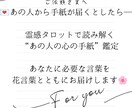 ご依頼まへ
あの人から手紙が届くとしたら──
霊感タロットで読み解く
“あの人の心の手紙”鑑定
あなたに必要な言葉を
花言葉とともにお届けします
For you